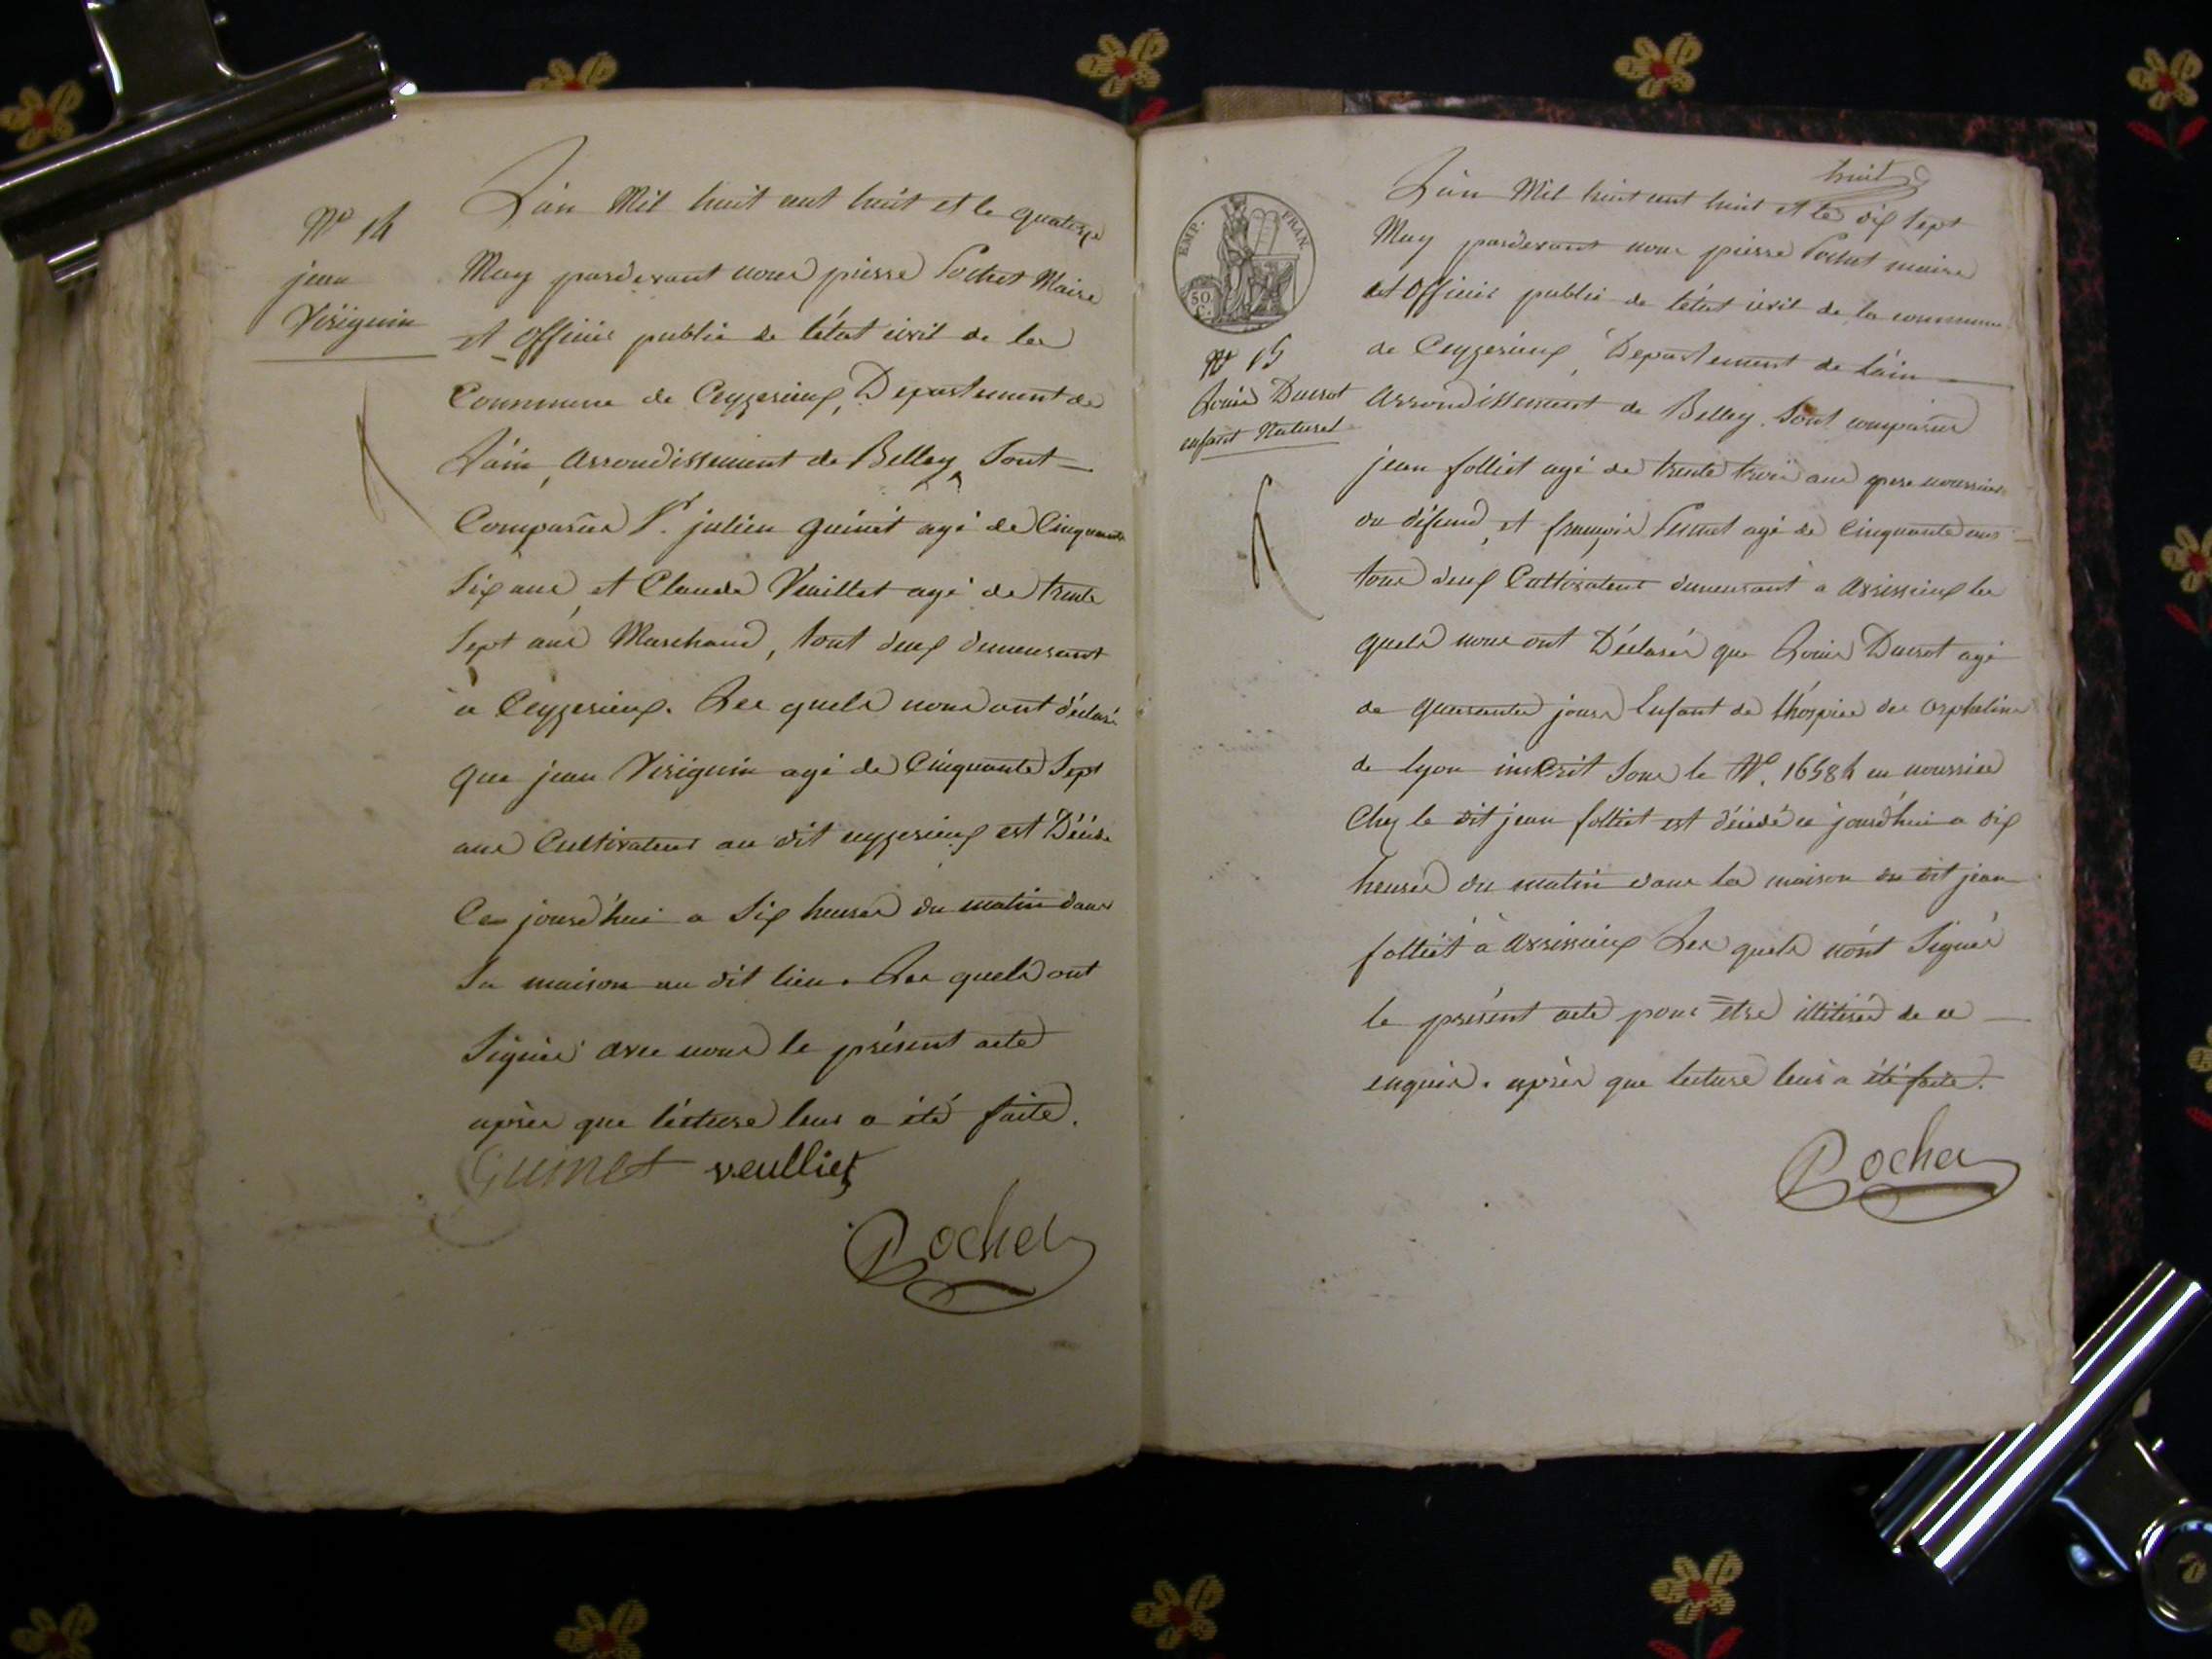 Nº 14
jean
Vériguin
L'an Mil huit cent huit et le quatorze
May pardevant nous pierre Pochet Maire
et Officier public de l'état civil de la
Commune de Ceyzerieux, Département de
L'ain, Arrondissement de Belley, Sont
Comparus Sr. julien guinet agé de Cinquante
Six ans, et Claude Veuillet agé de trente
Sept ans Marchand, tout deux demeurant
a Ceyzerieux. Les quels nous ont déclaré
que jean Vériguin agé de Cinquante Sept
ans Cultivateur au dit ceyzerieux est Décédé
Ce jourd'hui a Six heures du matin dans
Sa maison au dit lieu. Les quels ont
Signés avec nous le présent acte
après que lécture leur a été faite.
Guinet veulliet
Pochet
huit
EMP. FRAN.
50 C.
Nº 15
Louis Ducrot
enfant Naturel
L'an Mil huit cent huit et le dix Sept
May pardevant nous pierre Pochet maire
et Officier public de l'état civil de la commune
de Ceyzerieux, Département de L'ain
Arrondissement de Belley. Sont comparus
jean folliet agé de trente trois ans pere nourricier
du défunt, et françois agé de Cinquante ans
tous deux Cultivateurs demeurant a Avrissieux les
quels nous ont Déclarés que Louis Ducrot agé
de quarante jours Enfant de l'hospice des orphelins
de lyon inscrit Sous le Nº. 16584 en nourrice
Chez le dit jean folliet est décédé ce jourd'hui a dix
heures du matin dans la maison du dit jean
folliet à Avrissieux Les quels n'ont Signés
le présent acte pour être illitérés de ce
enquis. après que lecture leur a été faite.
Pochet